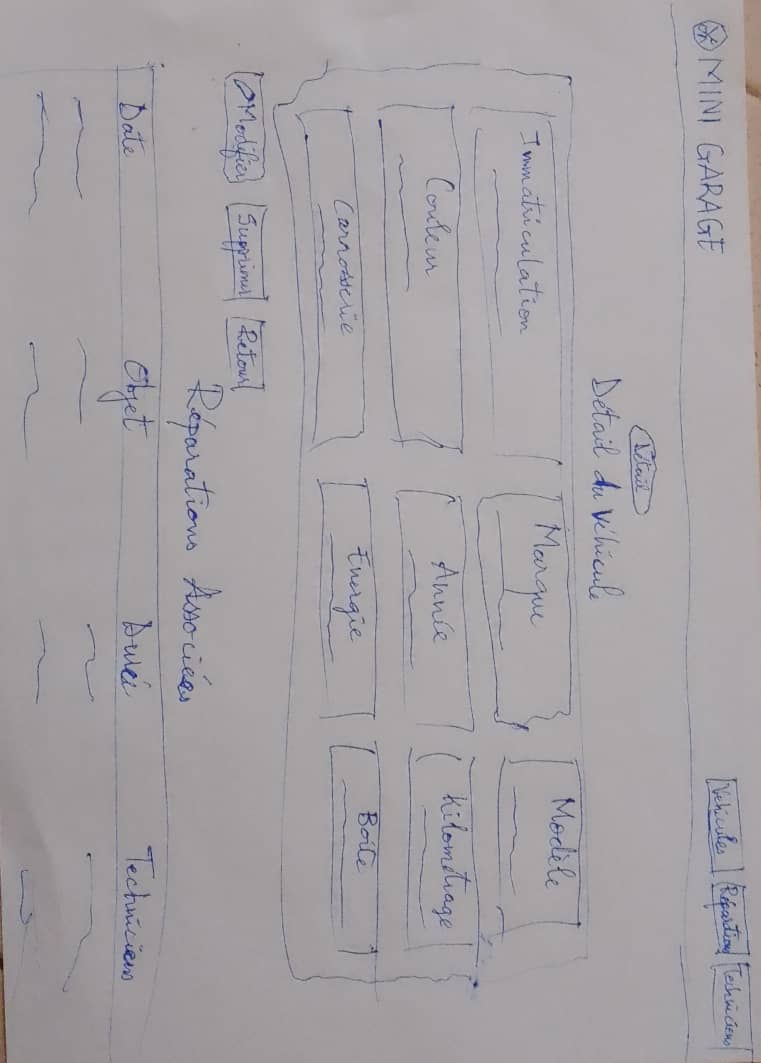 MINI GARAGE
Véhicules Réparations Techniciens
Détail
Détail du véhicule
Immatriculation Marque Modèle
Couleur Année Kilométrage
Carrosserie Energie Boîte
Modifier Supprimer Retour
Réparations Associées
Date Objet Durée Techniciens